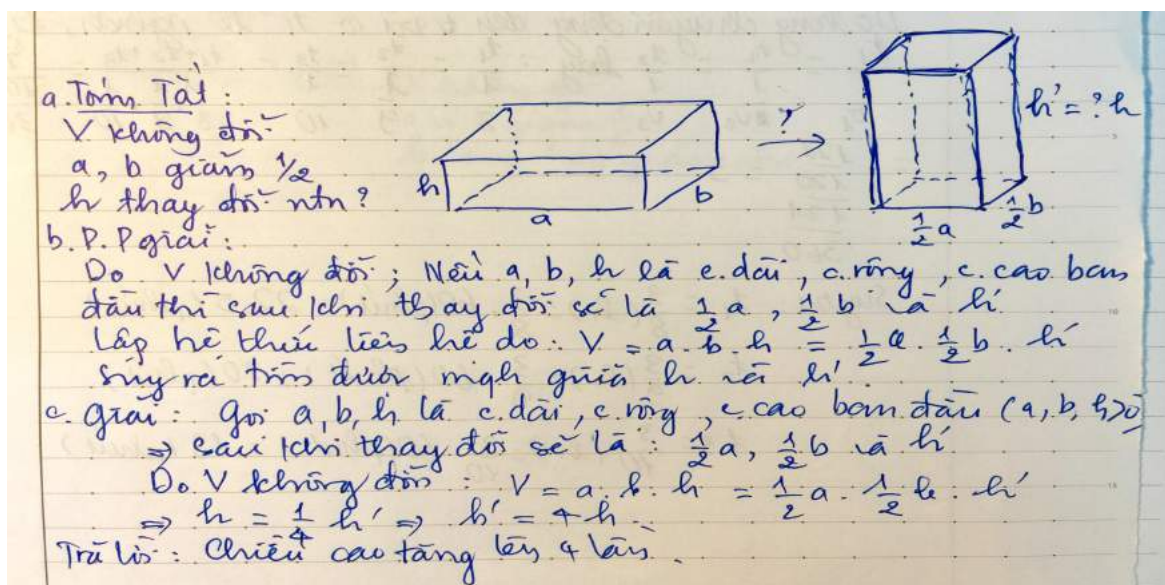 a. Tóm Tắt:
V không đổi
a, b giảm 1/2
h thay đổi ntn?
h
a
b
?
h' = ? h
1/2 a
1/2 b
b. P.P giải:
Do V không đổi; Nếu a, b, h là c.dài, c.rộng, c.cao ban
đầu thì sau khi thay đổi sẽ là 1/2 a, 1/2 b và h'
Lập hệ thức liên hệ do: V = a. b. h = 1/2 a. 1/2 b. h'
suy ra tìm được mqh giữa h và h'.
c. Giải: Gọi a, b, h là c.dài, c.rộng, c.cao ban đầu (a, b, h>0)
⇒ sau khi thay đổi sẽ là: 1/2 a, 1/2 b và h'
Do V không đổi: V = a. b. h = 1/2 a. 1/2 b. h'
⇒ h = 1/4 h' ⇒ h' = 4h.
Trả lời: Chiều cao tăng lên 4 lần.